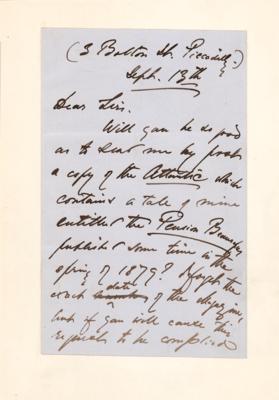 (3 Bolton St. Piccadilly.)
Sept. 13th
Dear Sirs.
Will you be so good
as to send me by post
a copy of the Atlantic which
contains a tale of mine
entitled the Pension Beaurepas
published some time in the
spring of 1879? I forget the
exact date of the magazine,
but if you will cause this
request to be complied